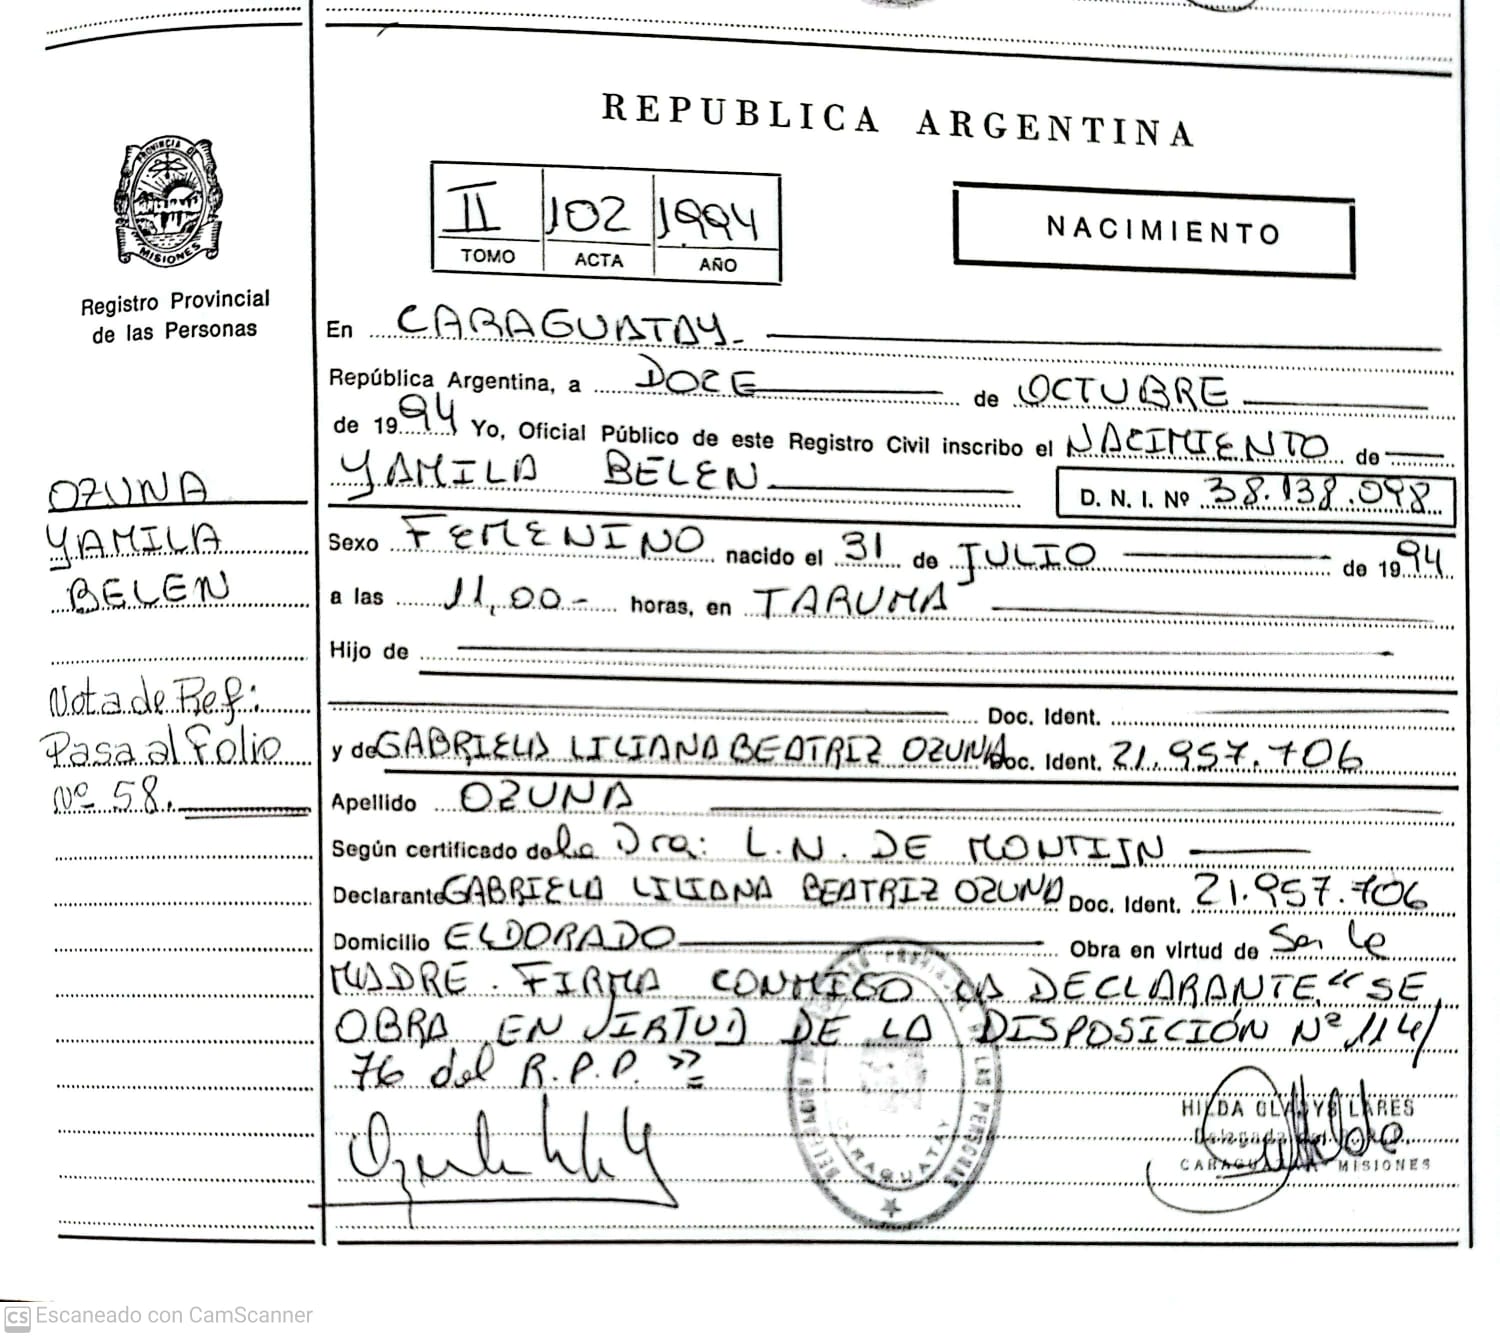 REPUBLICA ARGENTINA
PROVINCIA DE
MISIONES
Registro Provincial
de las Personas
II 102 1994
TOMO ACTA AÑO
NACIMIENTO
En CARAGUATAY.
República Argentina, a DOCE de OCTUBRE
de 1994 Yo, Oficial Público de este Registro Civil inscribo el NACIMIENTO de
YAMILA BELEN D. N. I. Nº 38.138.098
OZUNA
YAMILA
BELEN
Sexo FEMENINO nacido el 31 de JULIO de 1994
a las 11,00- horas, en TARUMA
Hijo de
Doc. Ident.
Nota de Ref:
Pasa al Folio
Nº 58.
y de GABRIELA LILIANA BEATRIZ OZUNA Doc. Ident. 21.957.706
Apellido OZUNA
Según certificado de la Dra: L.N. DE
Declarante GABRIELA LILIANA BEATRIZ OZUNA Doc. Ident. 21.957.706
Domicilio ELDORADO Obra en virtud de Ser la
MADRE. FIRMA CONMIGO LA DECLARANTE. "SE
OBRA EN VIRTUD DE LA DISPOSICIÓN Nº 114/
76 del R.P.P."
LAS PERSONAS
CARAGUATAY
HILDA LARES
Delegada
CARAGUATAY MISIONES
CS Escaneado con CamScanner